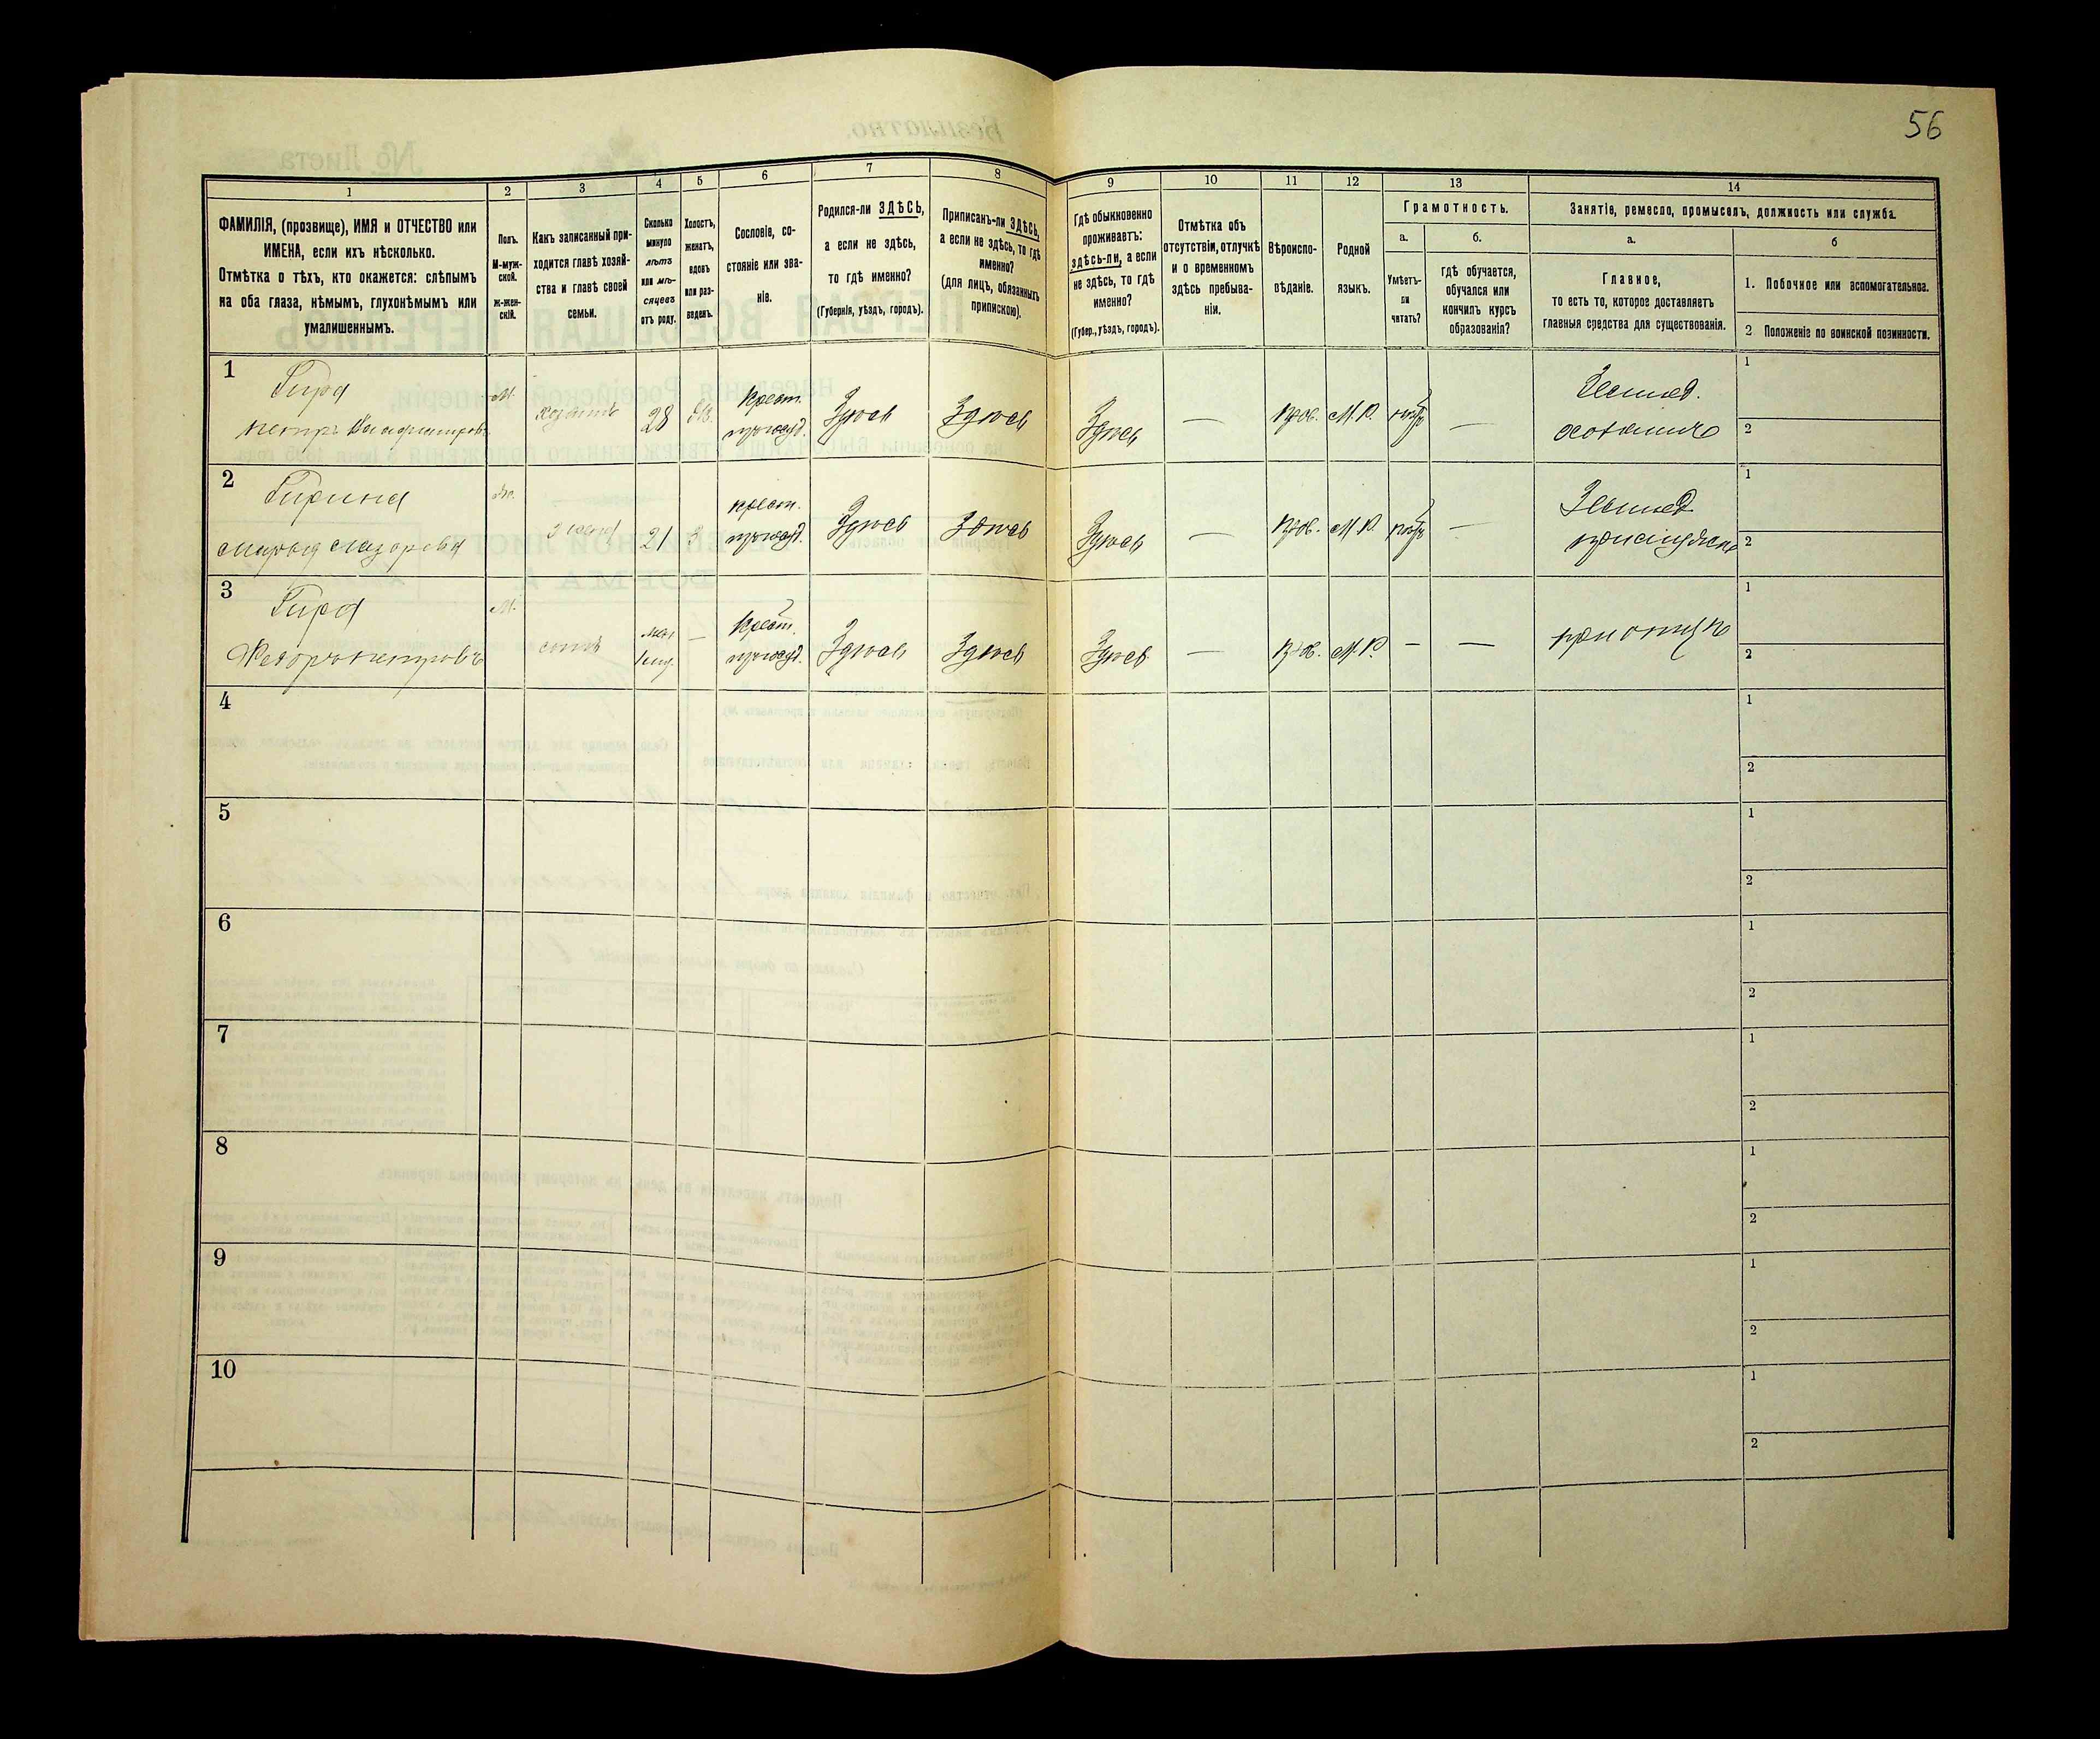 56
1
2
3
4
5
6
7
8
9
10
11
12
13
14
ФАМИЛІЯ, (прозвище), ИМЯ и ОТЧЕСТВО или
ИМЕНА, если ихъ нѣсколько.
Отмѣтка о тѣхъ, кто окажется: слѣпымъ
на оба глаза, нѣмымъ, глухонѣмымъ или
умалишеннымъ.
Полъ.
М-муж-
ской.
Ж-жен-
скій.
Какъ записанный при-
ходится главѣ хозяй-
ства и главѣ своей
семьи.
Сколько
минуло
лѣтъ
или мѣ-
сяцевъ
отъ роду.
Холостъ,
женатъ,
вдовъ
или раз-
веденъ.
Сословіе, со-
стояніе или зва-
ніе.
Родился-ли ЗДѢСЬ,
а если не здѣсь,
то гдѣ именно?
(Губернія, уѣздъ, городъ).
Приписанъ-ли ЗДѢСЬ,
а если не здѣсь, то гдѣ
именно?
(для лицъ, обязанныхъ
припискою).
Гдѣ обыкновенно
проживаетъ:
здѣсь-ли, а если
не здѣсь, то гдѣ
именно?
(Губер., уѣздъ, городъ).
Отмѣтка объ
отсутствіи, отлучкѣ
и о временномъ
здѣсь пребыва-
ніи.
Вѣроиспо-
вѣданіе.
Родной
языкъ.
Грамотность.
а.
Умѣетъ-
ли
читать?
б.
гдѣ обучается,
обучался или
кончилъ курсъ
образованія?
Занятіе, ремесло, промыселъ, должность или служба.
а.
Главное,
то есть то, которое доставляетъ
главныя средства для существованія.
б
1. Побочное или вспомогательное.
2 Положеніе по воинской повинности.
1
Гира
Петръ
М.
хозяинъ
28
Крест.
Здѣсь
Здѣсь
Здѣсь
—
М.Р.
нѣтъ
—
Землед.
1
2
2
Гирина
Марья Лазорева
Ж.
жена
21
З
Крест.
Здѣсь
Здѣсь
Здѣсь
—
М.Р.
нѣтъ
—
Землед.
1
2
3
Гира
Федоръ Петровъ
М.
сынъ
—
Крест.
Здѣсь
Здѣсь
Здѣсь
—
М.Р.
—
—
при отцѣ
1
2
4
1
2
5
1
2
6
1
2
7
1
2
8
1
2
9
1
2
10
1
2